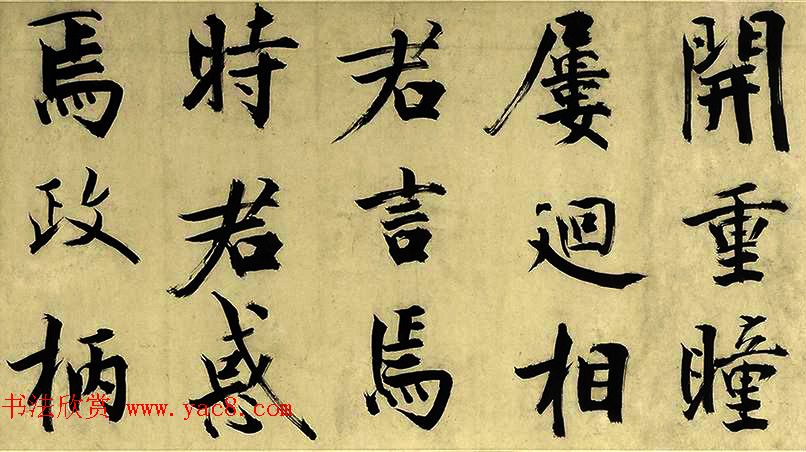 開重瞳
屢迴相
君言焉
時君惑
焉政柄
书法欣赏 www.yac8.com